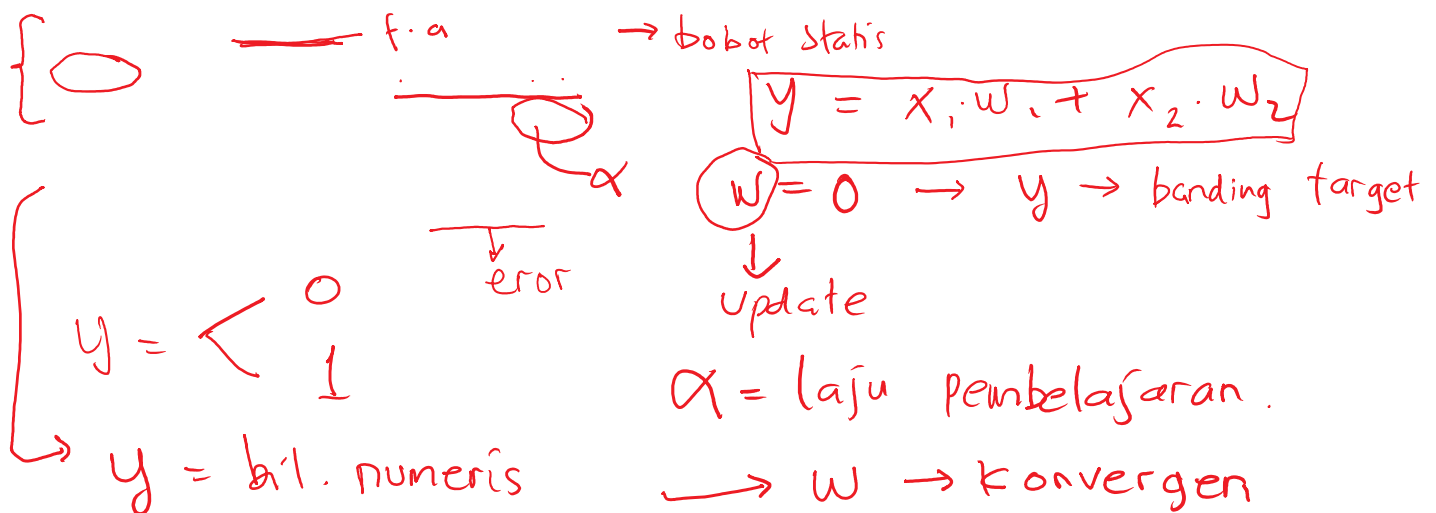 f.a → bobot statis
y = x₁.w₁ + x₂.w₂
α
w = 0 → y → banding target
eror
update
y = < 0
1
α = laju pembelajaran.
y = bil. numeris
→ w → konvergen